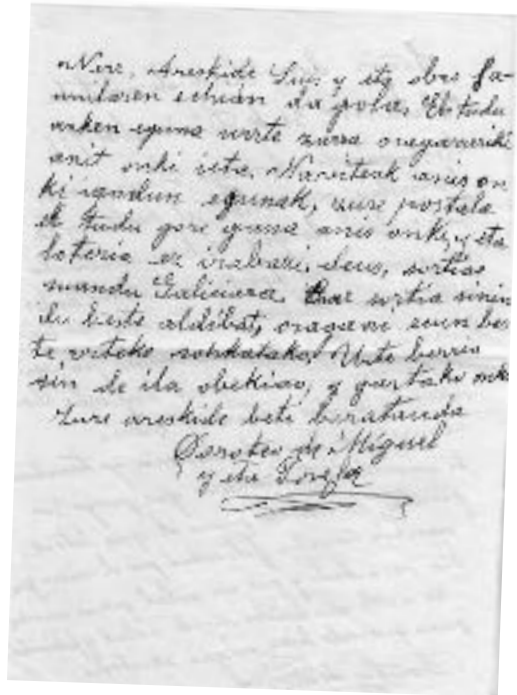 Nere, Areskide Luis y eta obre fa-
miliaren echian da gola, El tudu
anken eguna urte zarra onegarreriki
anit onki eta, Navitateak anis on
ki iandun egunak, zure postala
el tudu gore guma anis onki, y eta
loteria ez irabazi, deus, sortiao
mandu Galiciera, Char urtia sinin
du beste aldibat, oragani eeun bes
te, urteko sohkatako, Urte berria
sin de ila obekiao, y gertako onki
zure areskide beti beratanda
Doroteo de Miguel
y eta Josefa